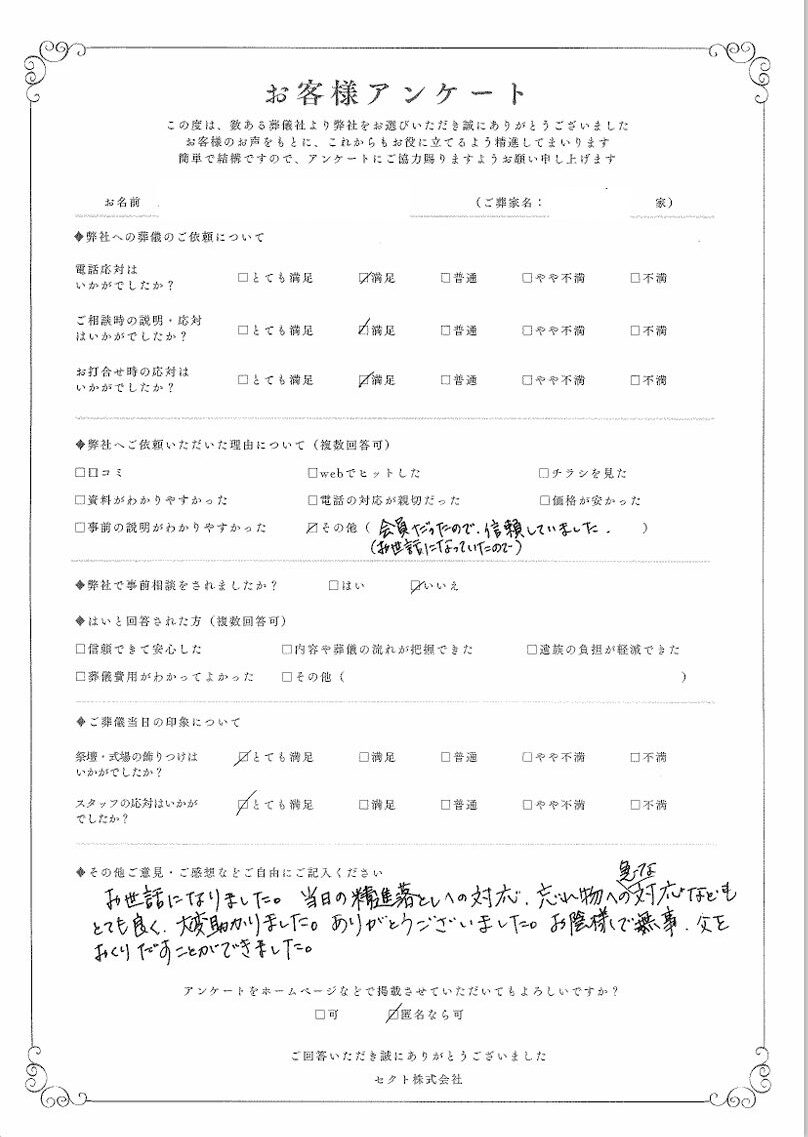 お客様アンケート
この度は、数ある葬儀社より弊社をお選びいただき誠にありがとうございました
お客様のお声をもとに、これからもお役に立てるよう精進してまいります
簡単で結構ですので、アンケートにご協力賜りますようお願い申し上げます
お名前 （ご葬家名： 家）
◆弊社への葬儀のご依頼について
電話応対は
いかがでしたか？ □とても満足 ☑満足 □普通 □やや不満 □不満
ご相談時の説明・応対
はいかがでしたか？ □とても満足 ☑満足 □普通 □やや不満 □不満
お打合せ時の応対は
いかがでしたか？ □とても満足 ☑満足 □普通 □やや不満 □不満
◆弊社へご依頼いただいた理由について（複数回答可）
□口コミ □webでヒットした □チラシを見た
□資料がわかりやすかった □電話の対応が親切だった □価格が安かった
□事前の説明がわかりやすかった ☑その他（会員だったので、信頼していました。）
(お世話になっていたので)
◆弊社で事前相談をされましたか？ □はい ☑いいえ
◆はいと回答された方（複数回答可）
□信頼できて安心した □内容や葬儀の流れが把握できた □遺族の負担が軽減できた
□葬儀費用がわかってよかった □その他（ ）
◆ご葬儀当日の印象について
祭壇・式場の飾りつけは
いかがでしたか？ ☑とても満足 □満足 □普通 □やや不満 □不満
スタッフの応対はいかが
でしたか？ ☑とても満足 □満足 □普通 □やや不満 □不満
◆その他ご意見・ご感想などご自由にご記入ください
お世話になりました。当日の精進落としへの対応、忘れ物への急な対応なども
とても良く、大変助かりました。ありがとうございました。お陰様で無事、父を
おくりだすことができました。
アンケートをホームページなどで掲載させていただいてもよろしいですか？
□可 ☑匿名なら可
ご回答いただき誠にありがとうございました
セクト株式会社